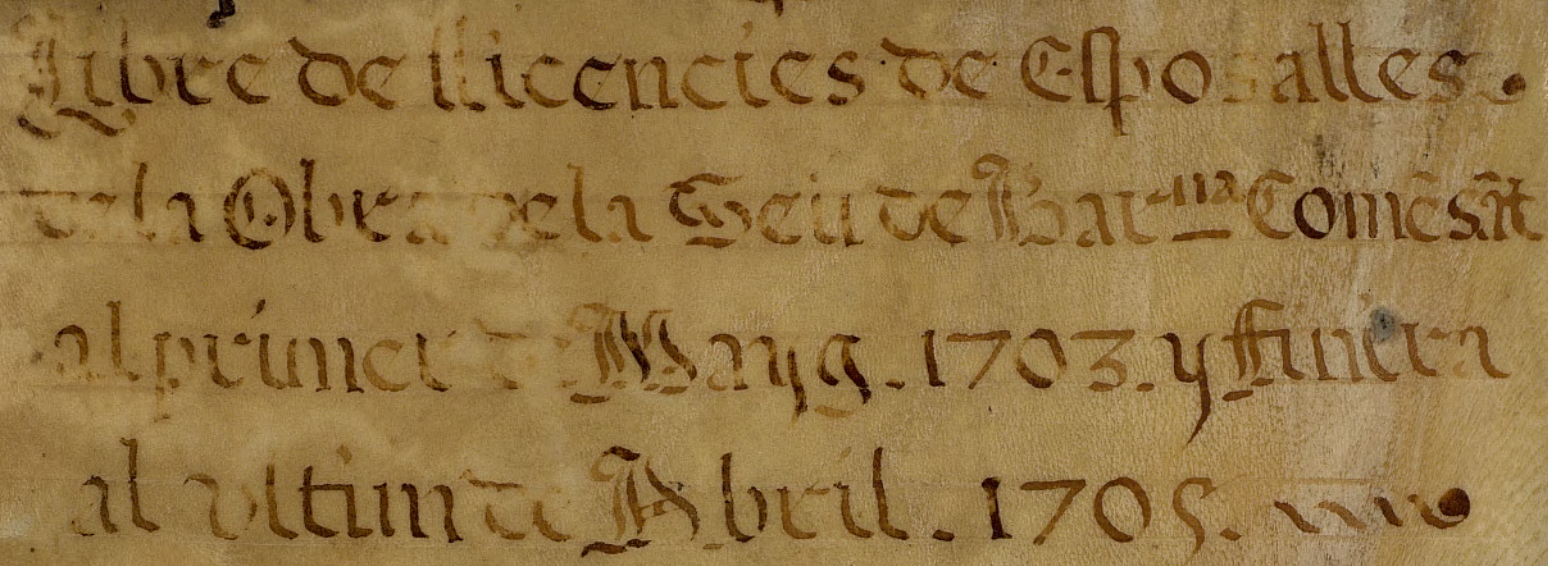 Llibre de llicencies de Esposalles.
de la Obra de la Seu de Bar^na Comēsāt
al primer de Mayg. 1703. y finira
al vltim de Abril. 1705.